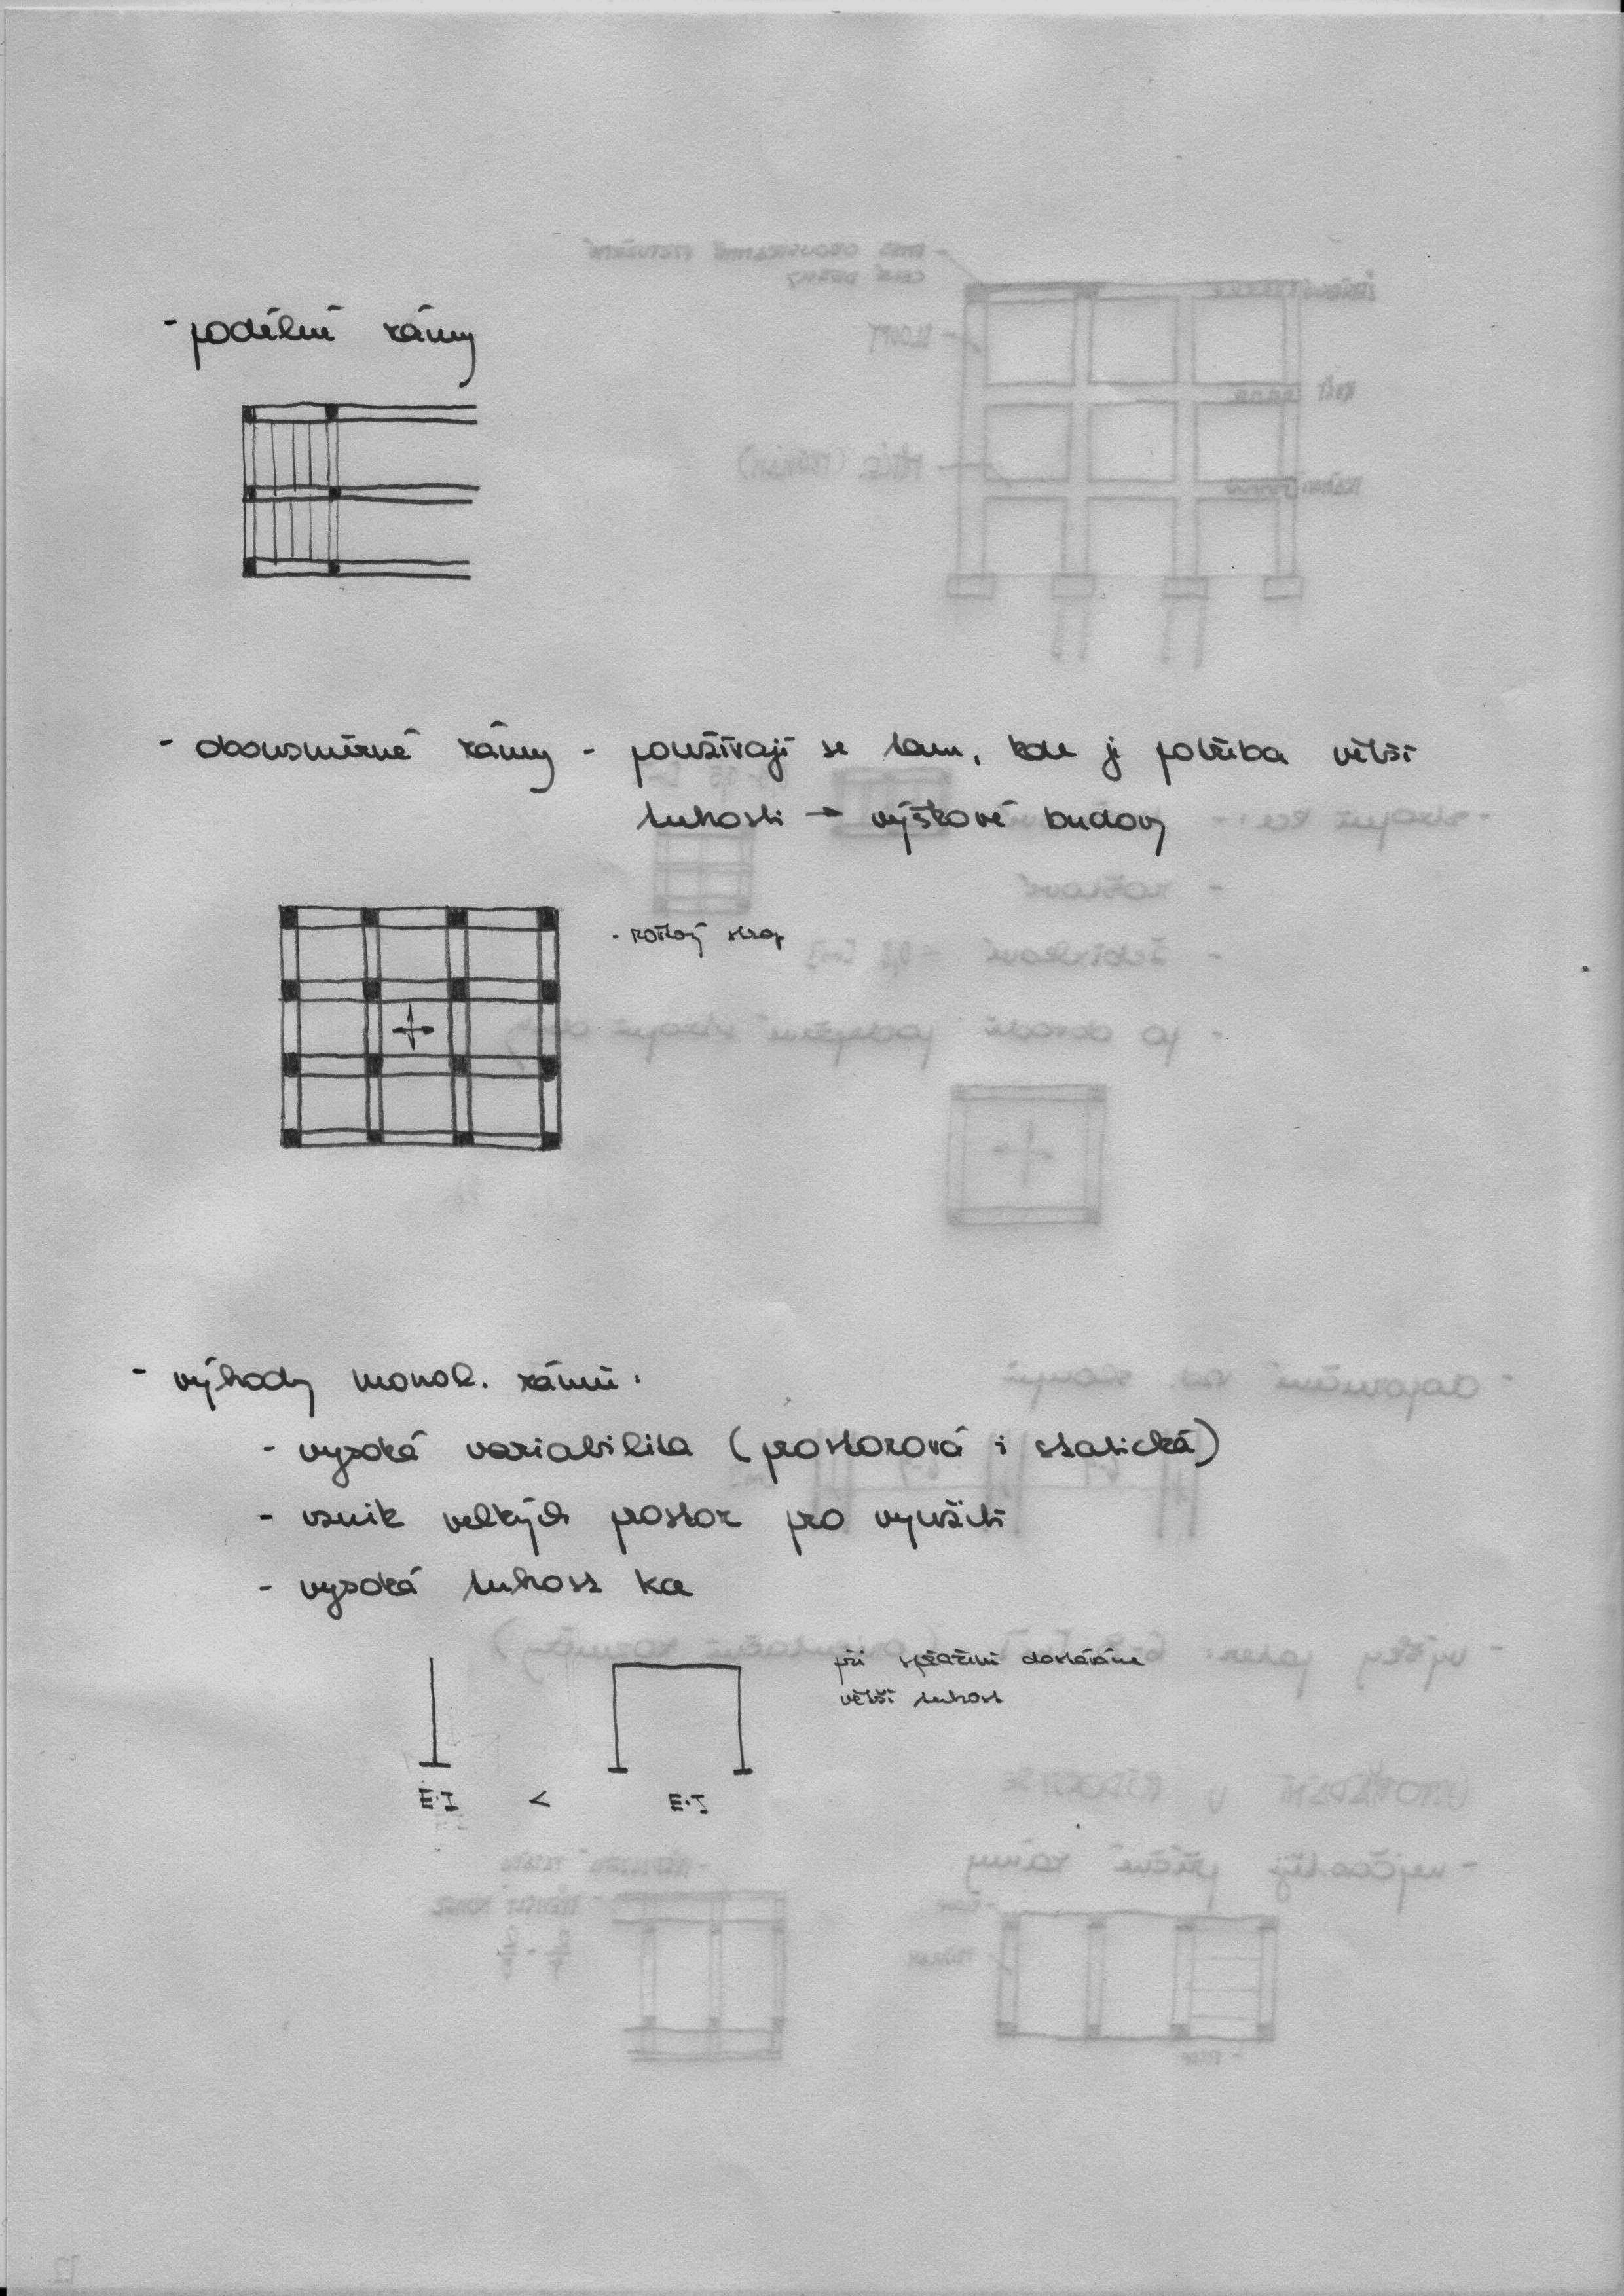 - podélné rámy
- obousměrné rámy - používají se tam, kde je potřeba větší
tuhosti → výškové budovy
- roštový strop
- výhody monol. rámů:
- vysoká variabilita (prostorová i statická)
- vznik velkých prostor pro využití
- vysoká tuhost kce
při spřažení dostáváme
větší tuhost
E·I < E·I